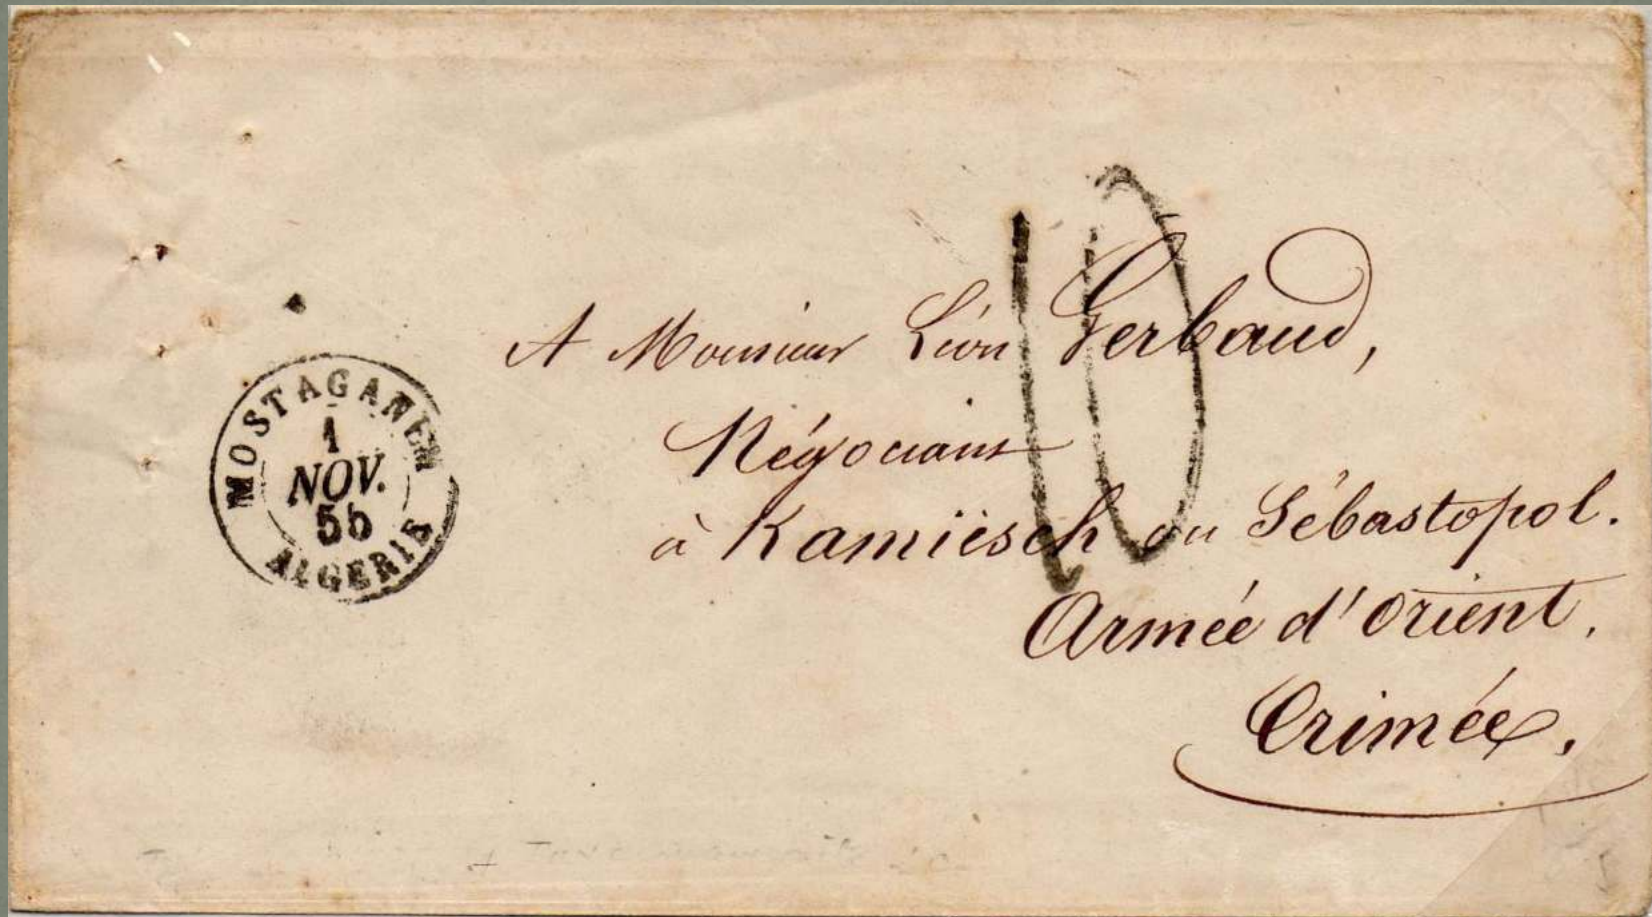 MOSTAGANEM
1
NOV.
55
ALGERIE
10
A Monsieur Léon Gerbaud,
Négociant
à Kamiesch ou Sébastopol.
Armée d'Orient.
Crimée.